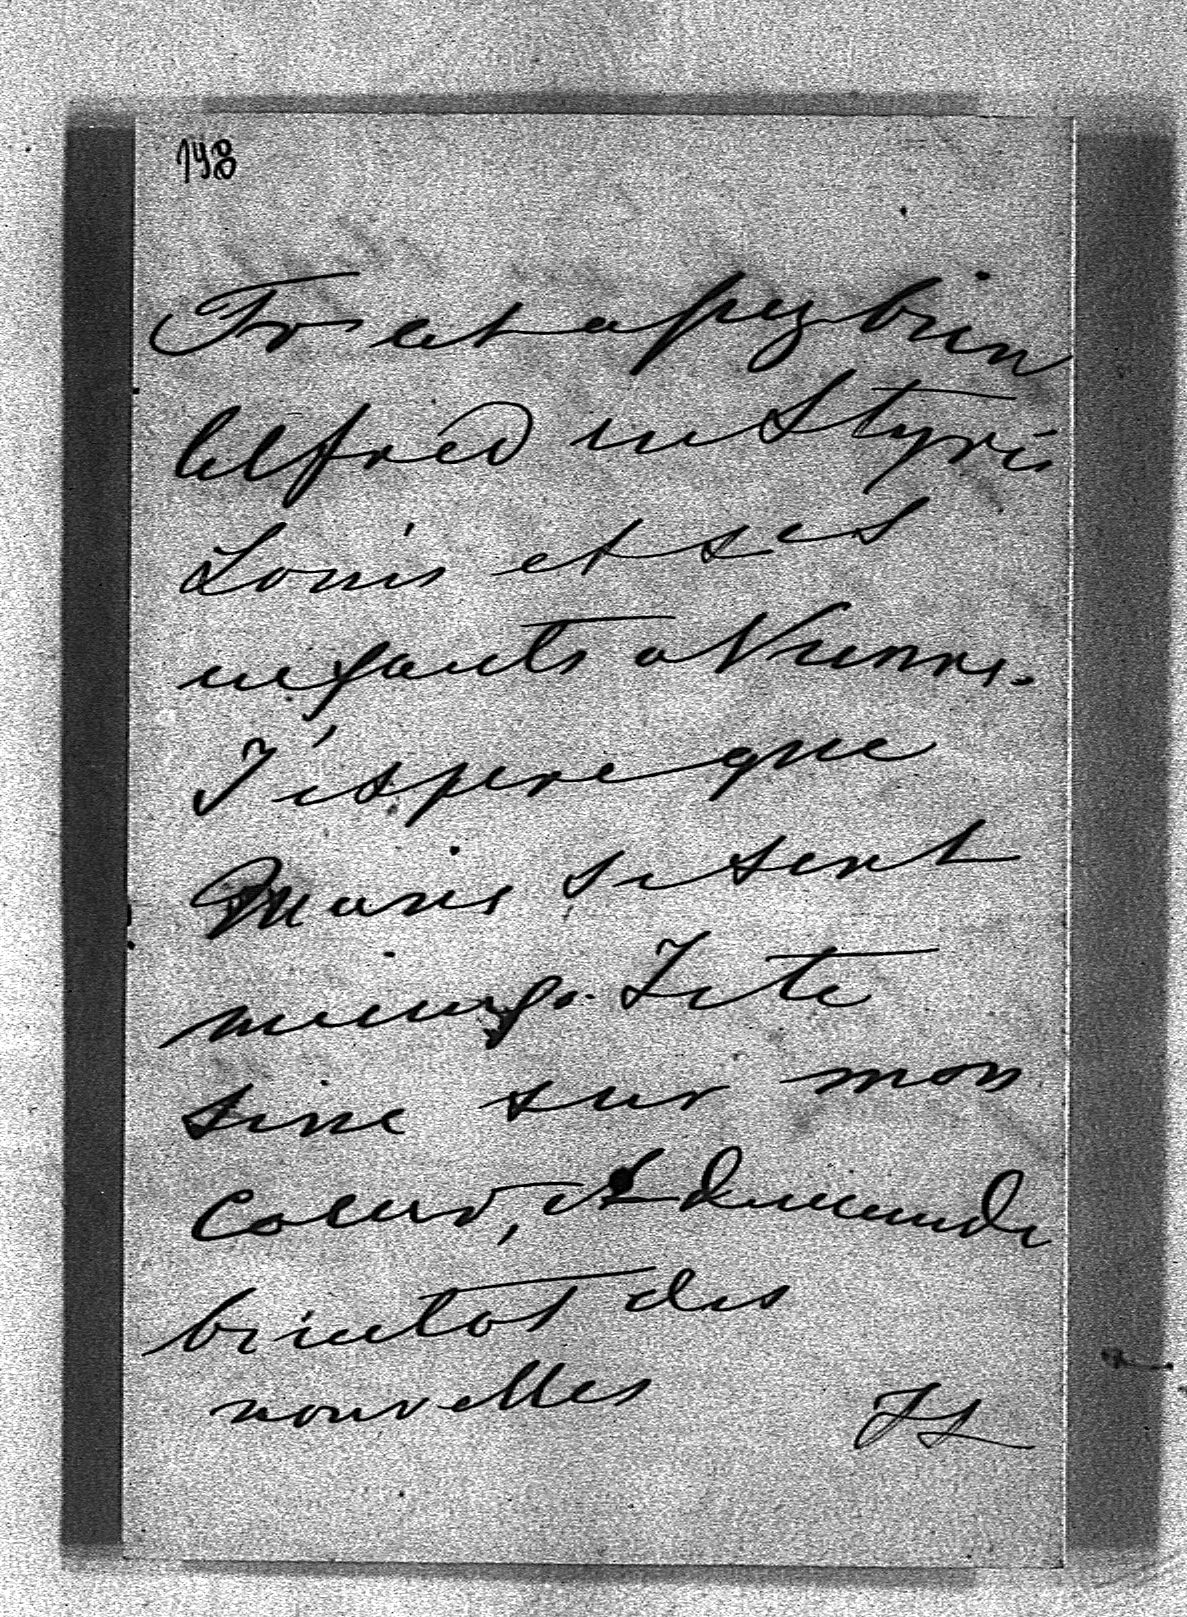 148
Fr est assez bien
Alfred en Styrie
Louis et ses
enfants a Vienne.
J'éspere que
Marie se sent
mieux. Je te
serre sur mon
coeur, et demande
bientot des
nouvelles